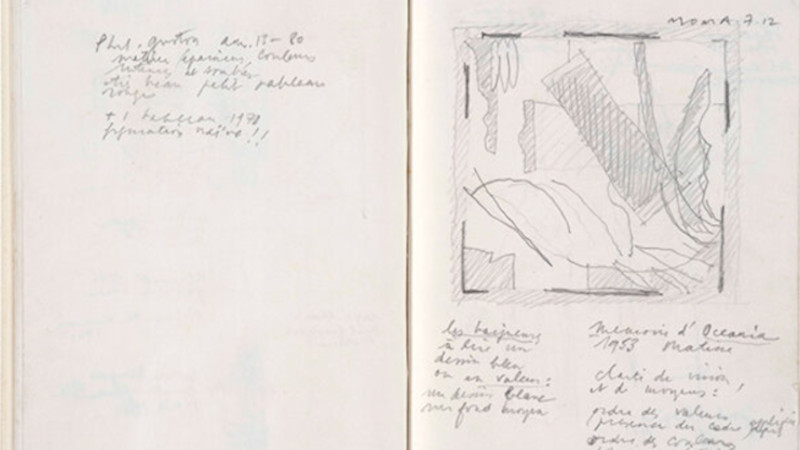 Phil. guston ann. 13 - 80
matières épaisses, couleurs
retenues et sombres
très beau petit tableau
rouge
+ 1 tableau 1970
figuration naïve !!
MOMA 7.12
les baigneurs
à lire un
dessin bleu
ou en valeur :
un dessin blanc
sur fond moyen
Memoris d'Oceania
1953 Matisse
clarté de vision,
et de moyens :
ordre des valeurs
présence du cadre
ordre des couleurs